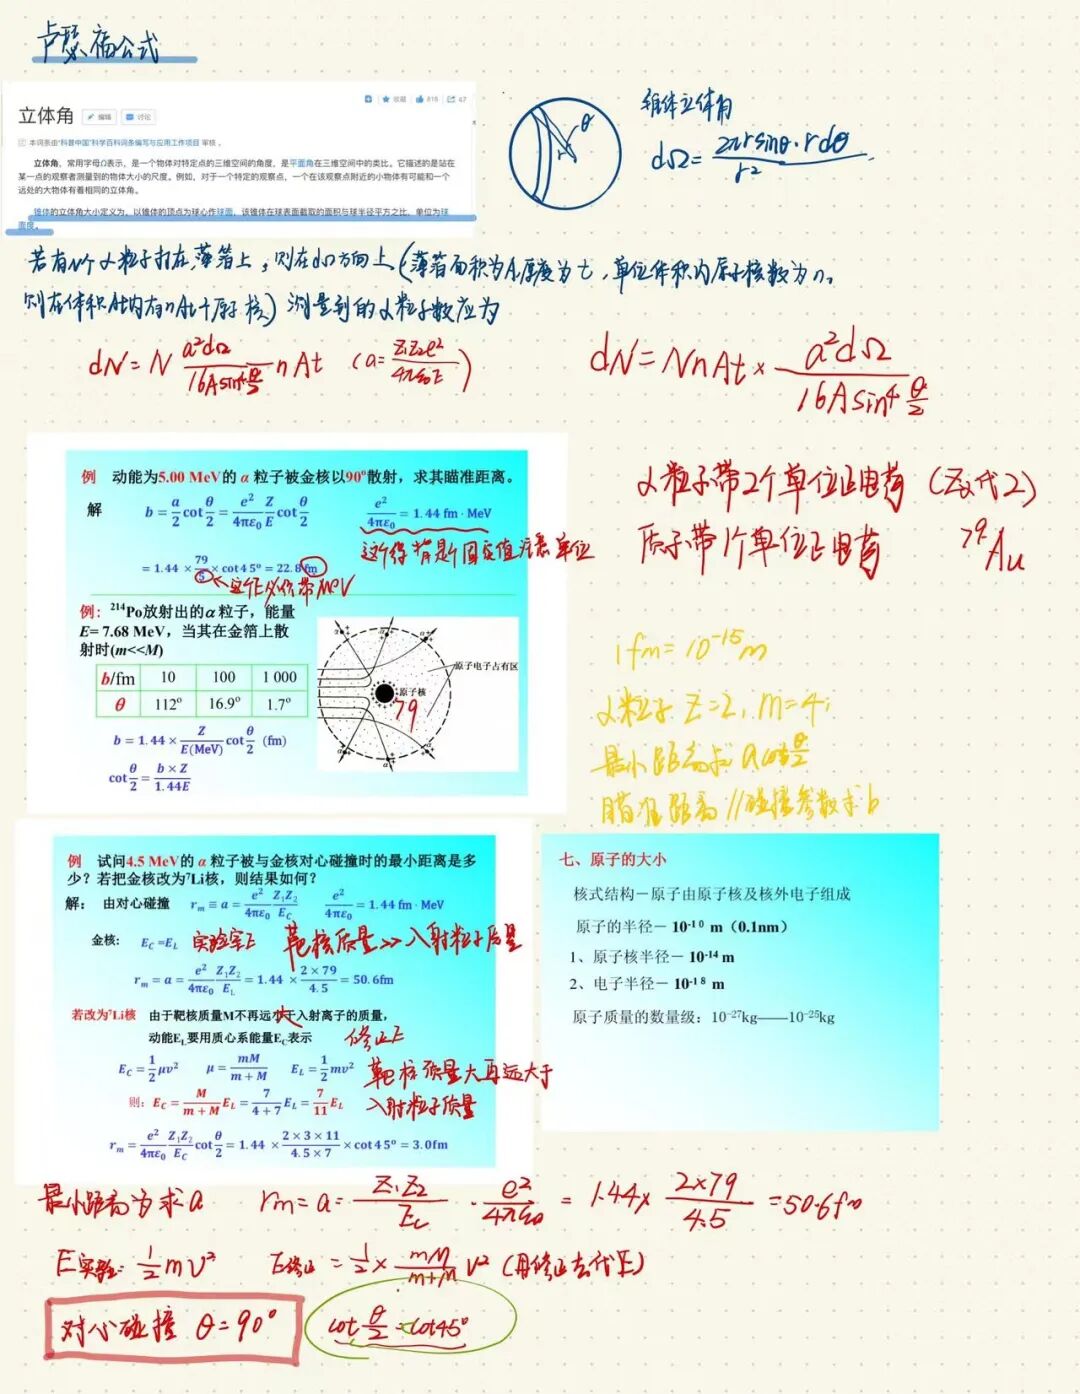 卢瑟福公式
立体角 编辑 讨论
收藏 818 47
本词条由“科普中国”科学百科词条编写与应用工作项目 审核 。
立体角，常用字母Ω表示，是一个物体对特定点的三维空间的角度，是平面角在三维空间中的类比。它描述的是站在
某一点的观察者测量到的物体大小的尺度。例如，对于一个特定的观察点，一个在该观察点附近的小物体有可能和一个
远处的大物体有着相同的立体角。
锥体的立体角大小定义为，以锥体的顶点为球心作球面，该锥体在球表面截取的面积与球半径平方之比，单位为球
面度。
θ
锥体立体角
dΩ = 2πrsinθ·rdθ / r²
若有N个α粒子打在薄箔上，则在dΩ方向上(薄箔面积为A,厚度为t，单位体积内原子核数为n。
则在体积At内有nAt个原子核) 测量到的α粒子数应为
dN = N a²dΩ / 16Asin⁴θ/2 nAt (a = Z₁Z₂e² / 4πε₀E)
dN = NnAt × a²dΩ / 16Asin⁴θ/2
例 动能为5.00 MeV的 α 粒子被金核以90°散射，求其瞄准距离。
解 b = a/2 cot θ/2 = e²/4πε₀ Z/E cot θ/2 e²/4πε₀ = 1.44 fm · MeV
这个得背是个固定值注意单位
= 1.44 × 79/5 × cot45° = 22.8fm
这个E必须带MeV
α粒子带2个单位正电荷 (Z₁代2)
质子带1个单位正电荷 ⁷⁹Au
例：²¹⁴Po放射出的α粒子，能量
E= 7.68 MeV，当其在金箔上散
射时(m<<M)
b/fm 10 100 1 000
θ 112° 16.9° 1.7°
b = 1.44 × Z/E(MeV) cot θ/2 (fm)
cot θ/2 = b × Z / 1.44E
原子电子占有区
原子核
79
1fm = 10⁻¹⁵m
α粒子 Z=2, m=4;
瞄准距离//碰撞参数求b
例 试问4.5 MeV的 α 粒子被与金核对心碰撞时的最小距离是多
少？若把金核改为⁷Li核，则结果如何？
解： 由对心碰撞 rₘ ≡ a = e²/4πε₀ Z₁Z₂/E_C e²/4πε₀ = 1.44 fm · MeV
金核: E_C =E_L 实验室E 靶核质量>>入射粒子质量
rₘ = a = e²/4πε₀ Z₁Z₂/E_L = 1.44 × 2 × 79/4.5 = 50.6fm
若改为⁷Li核 由于靶核质量M不再远小于入射离子的质量，
大
动能E_L要用质心系能量E_C表示 修正E
E_C = 1/2 μv² μ = mM/m + M E_L = 1/2 mv² 靶核质量大再远大于
则: E_C = M/m + M E_L = 7/4 + 7 E_L = 7/11 E_L 入射粒子质量
rₘ = e²/4πε₀ Z₁Z₂/E_C cot θ/2 = 1.44 × 2 × 3 × 11/4.5 × 7 × cot45° = 3.0fm
七、原子的大小
核式结构－原子由原子核及核外电子组成
原子的半径－ 10⁻¹⁰ m（0.1nm）
1、原子核半径－ 10⁻¹⁴ m
2、电子半径－ 10⁻¹⁸ m
原子质量的数量级：10⁻²⁷kg——10⁻²⁵kg
最小距离为求a rm = a = Z₁Z₂/Ec · e²/4πε₀ = 1.44× 2×79/4.5 = 50.6fm
E实验: 1/2 mv² E修正 = 1/2 × mM/m+M v² (用修正去代E)
对心碰撞 θ=90°
cot θ/2 = cot45°